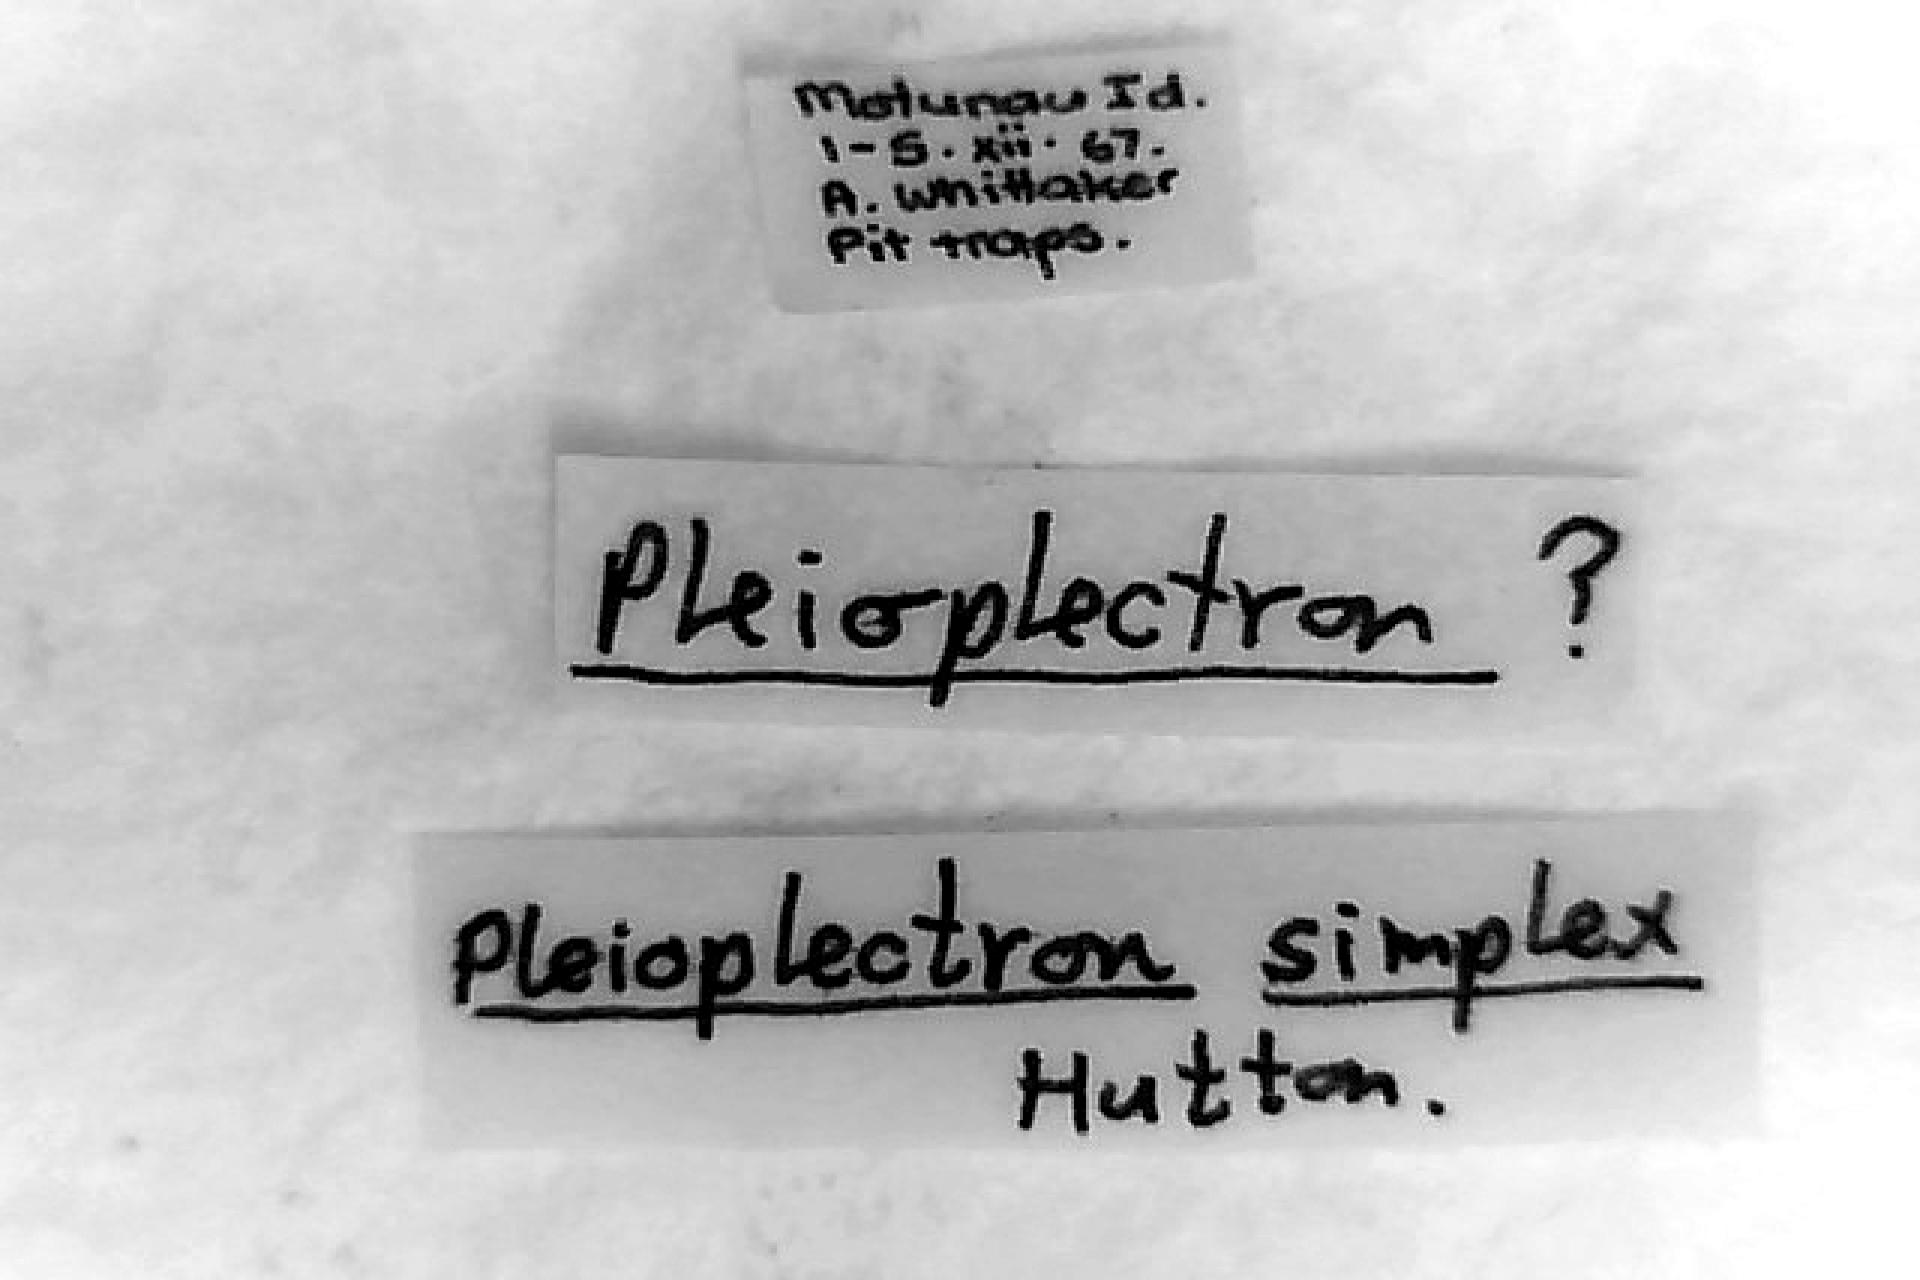 Motunau Id.
1-5.xii.67.
A. Whittaker
Pit traps.
Pleioplectron ?
Pleioplectron simplex
Hutton.